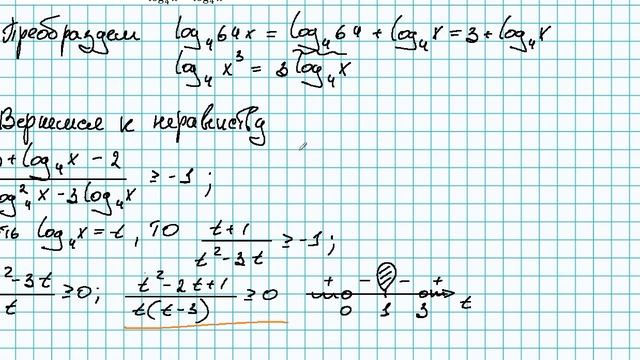 Преобразуем log₄64x = log₄64 + log₄x = 3 + log₄x
log₄x³ = 3log₄x
Вернемся к неравенству
+ log₄x − 2 / log₄²x − 3log₄x ≥ −1 ;
ть log₄x = t, то (t+1)/(t²−3t) ≥ −1;
²−3t / t ≥ 0; (t²−2t+1)/(t(t−3)) ≥ 0 + − − + 0 1 3 t